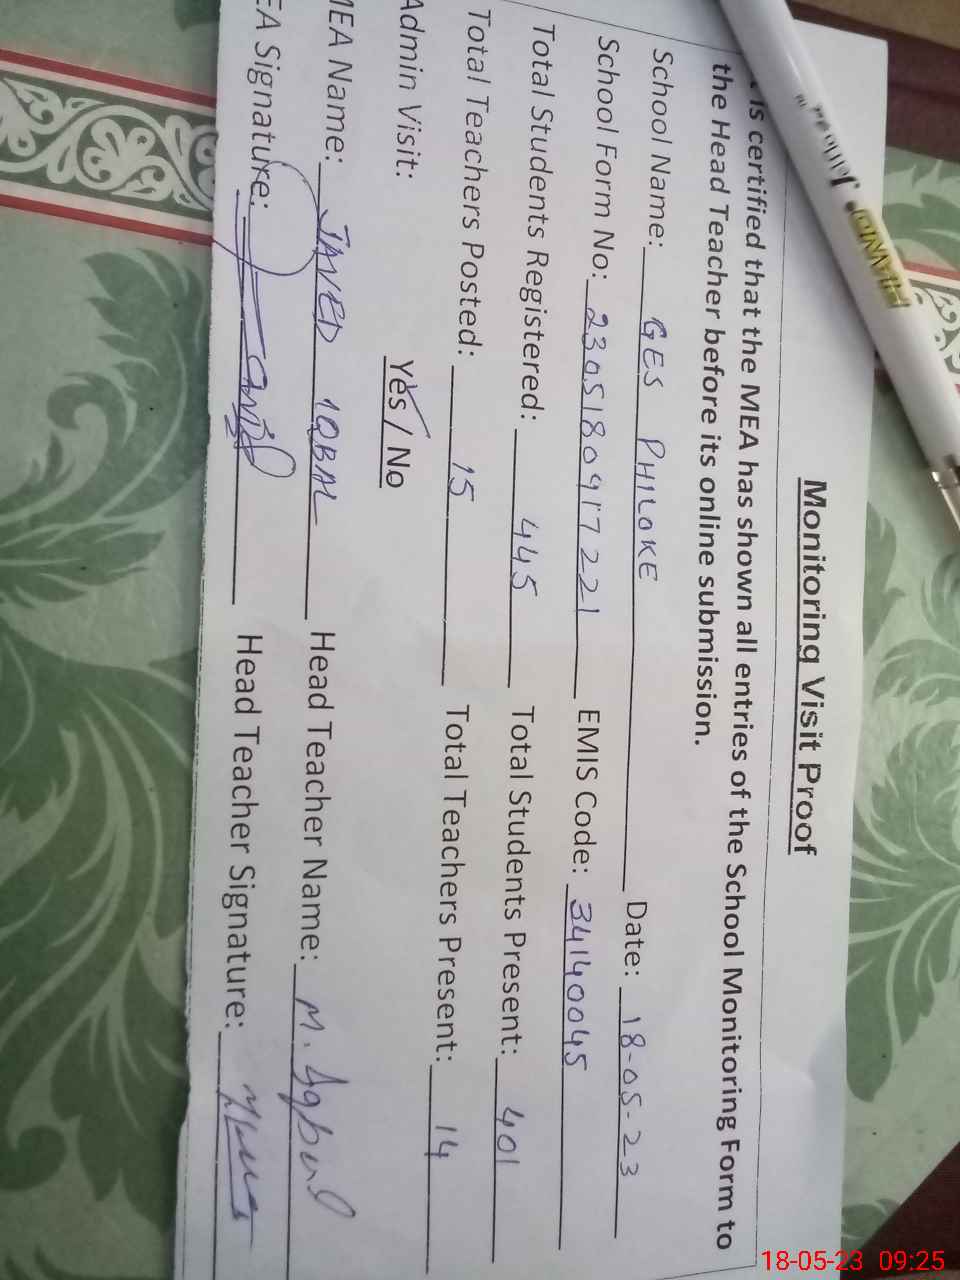 Monitoring Visit Proof
is certified that the MEA has shown all entries of the School Monitoring Form to
the Head Teacher before its online submission.
School Name: GES PHILOKE Date: 18-05-23
School Form No: 2305180917221 EMIS Code: 34140045
Total Students Registered: 445 Total Students Present: 401
Total Teachers Posted: 15 Total Teachers Present: 14
Admin Visit: Yes / No
MEA Name: JAVED IQBAL Head Teacher Name: M. Iqbal
EA Signature: Head Teacher Signature:
PIANO
18-05-23 09:25